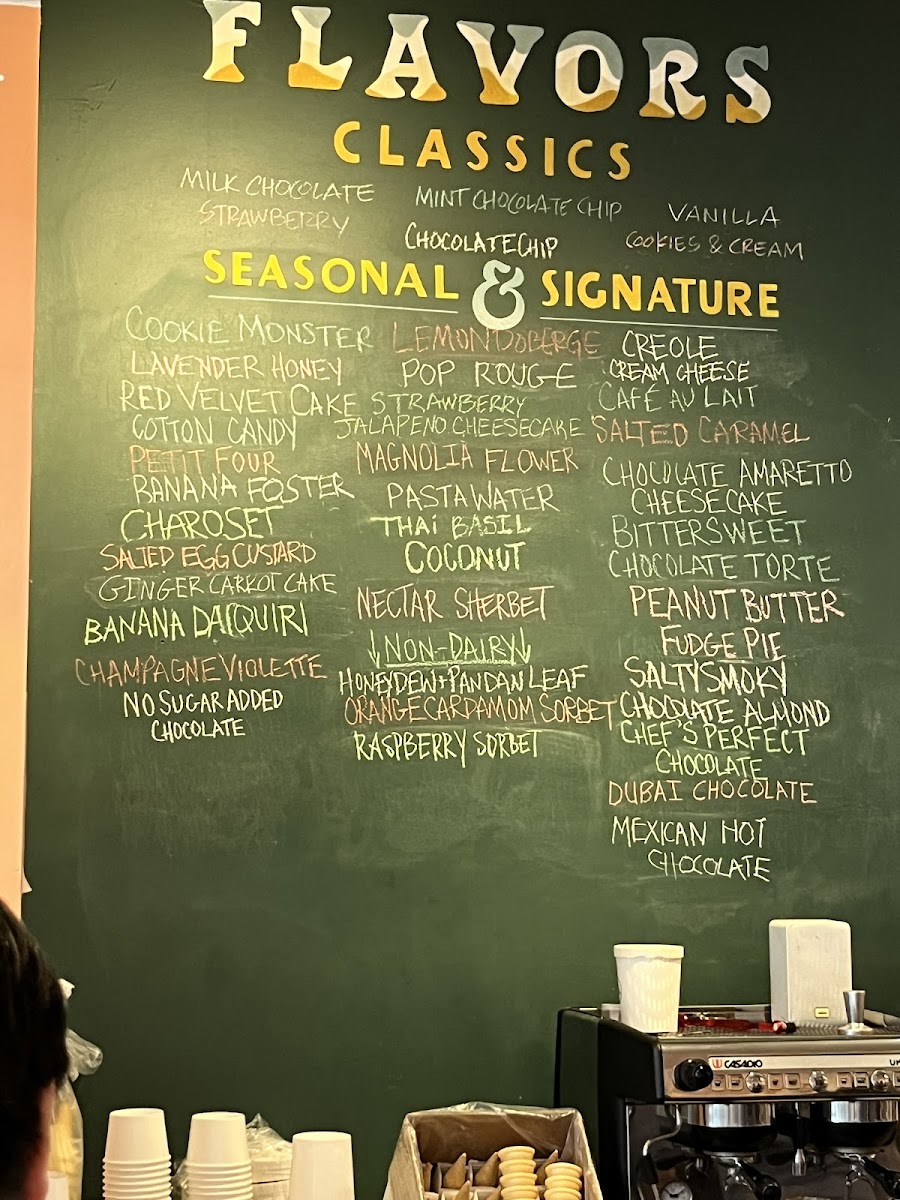 FLAVORS
CLASSICS
MILK CHOCOLATE
STRAWBERRY
MINT CHOCOLATE CHIP
CHOCOLATE CHIP
VANILLA
COOKIES & CREAM
SEASONAL & SIGNATURE
COOKIE MONSTER
LAVENDER HONEY
RED VELVET CAKE
COTTON CANDY
PETIT FOUR
BANANA FOSTER
CHAROSET
SALTED EGG CUSTARD
GINGER CARROT CAKE
BANANA DAIQUIRI
CHAMPAGNE VIOLETTE
NO SUGAR ADDED
CHOCOLATE
LEMON DOBERGE
POP ROUGE
STRAWBERRY
JALAPENO CHEESECAKE
MAGNOLIA FLOWER
PASTA WATER
THAI BASIL
COCONUT
NECTAR SHERBET
↓NON-DAIRY↓
HONEYDEW + PANDAN LEAF
ORANGE CARDAMOM SORBET
RASPBERRY SORBET
CREOLE
CREAM CHEESE
CAFÉ AU LAIT
SALTED CARAMEL
CHOCOLATE AMARETTO
CHEESECAKE
BITTERSWEET
CHOCOLATE TORTE
PEANUT BUTTER
FUDGE PIE
SALTY SMOKY
CHOCOLATE ALMOND
CHEF'S PERFECT
CHOCOLATE
DUBAI CHOCOLATE
MEXICAN HOT
CHOCOLATE
CASADIO